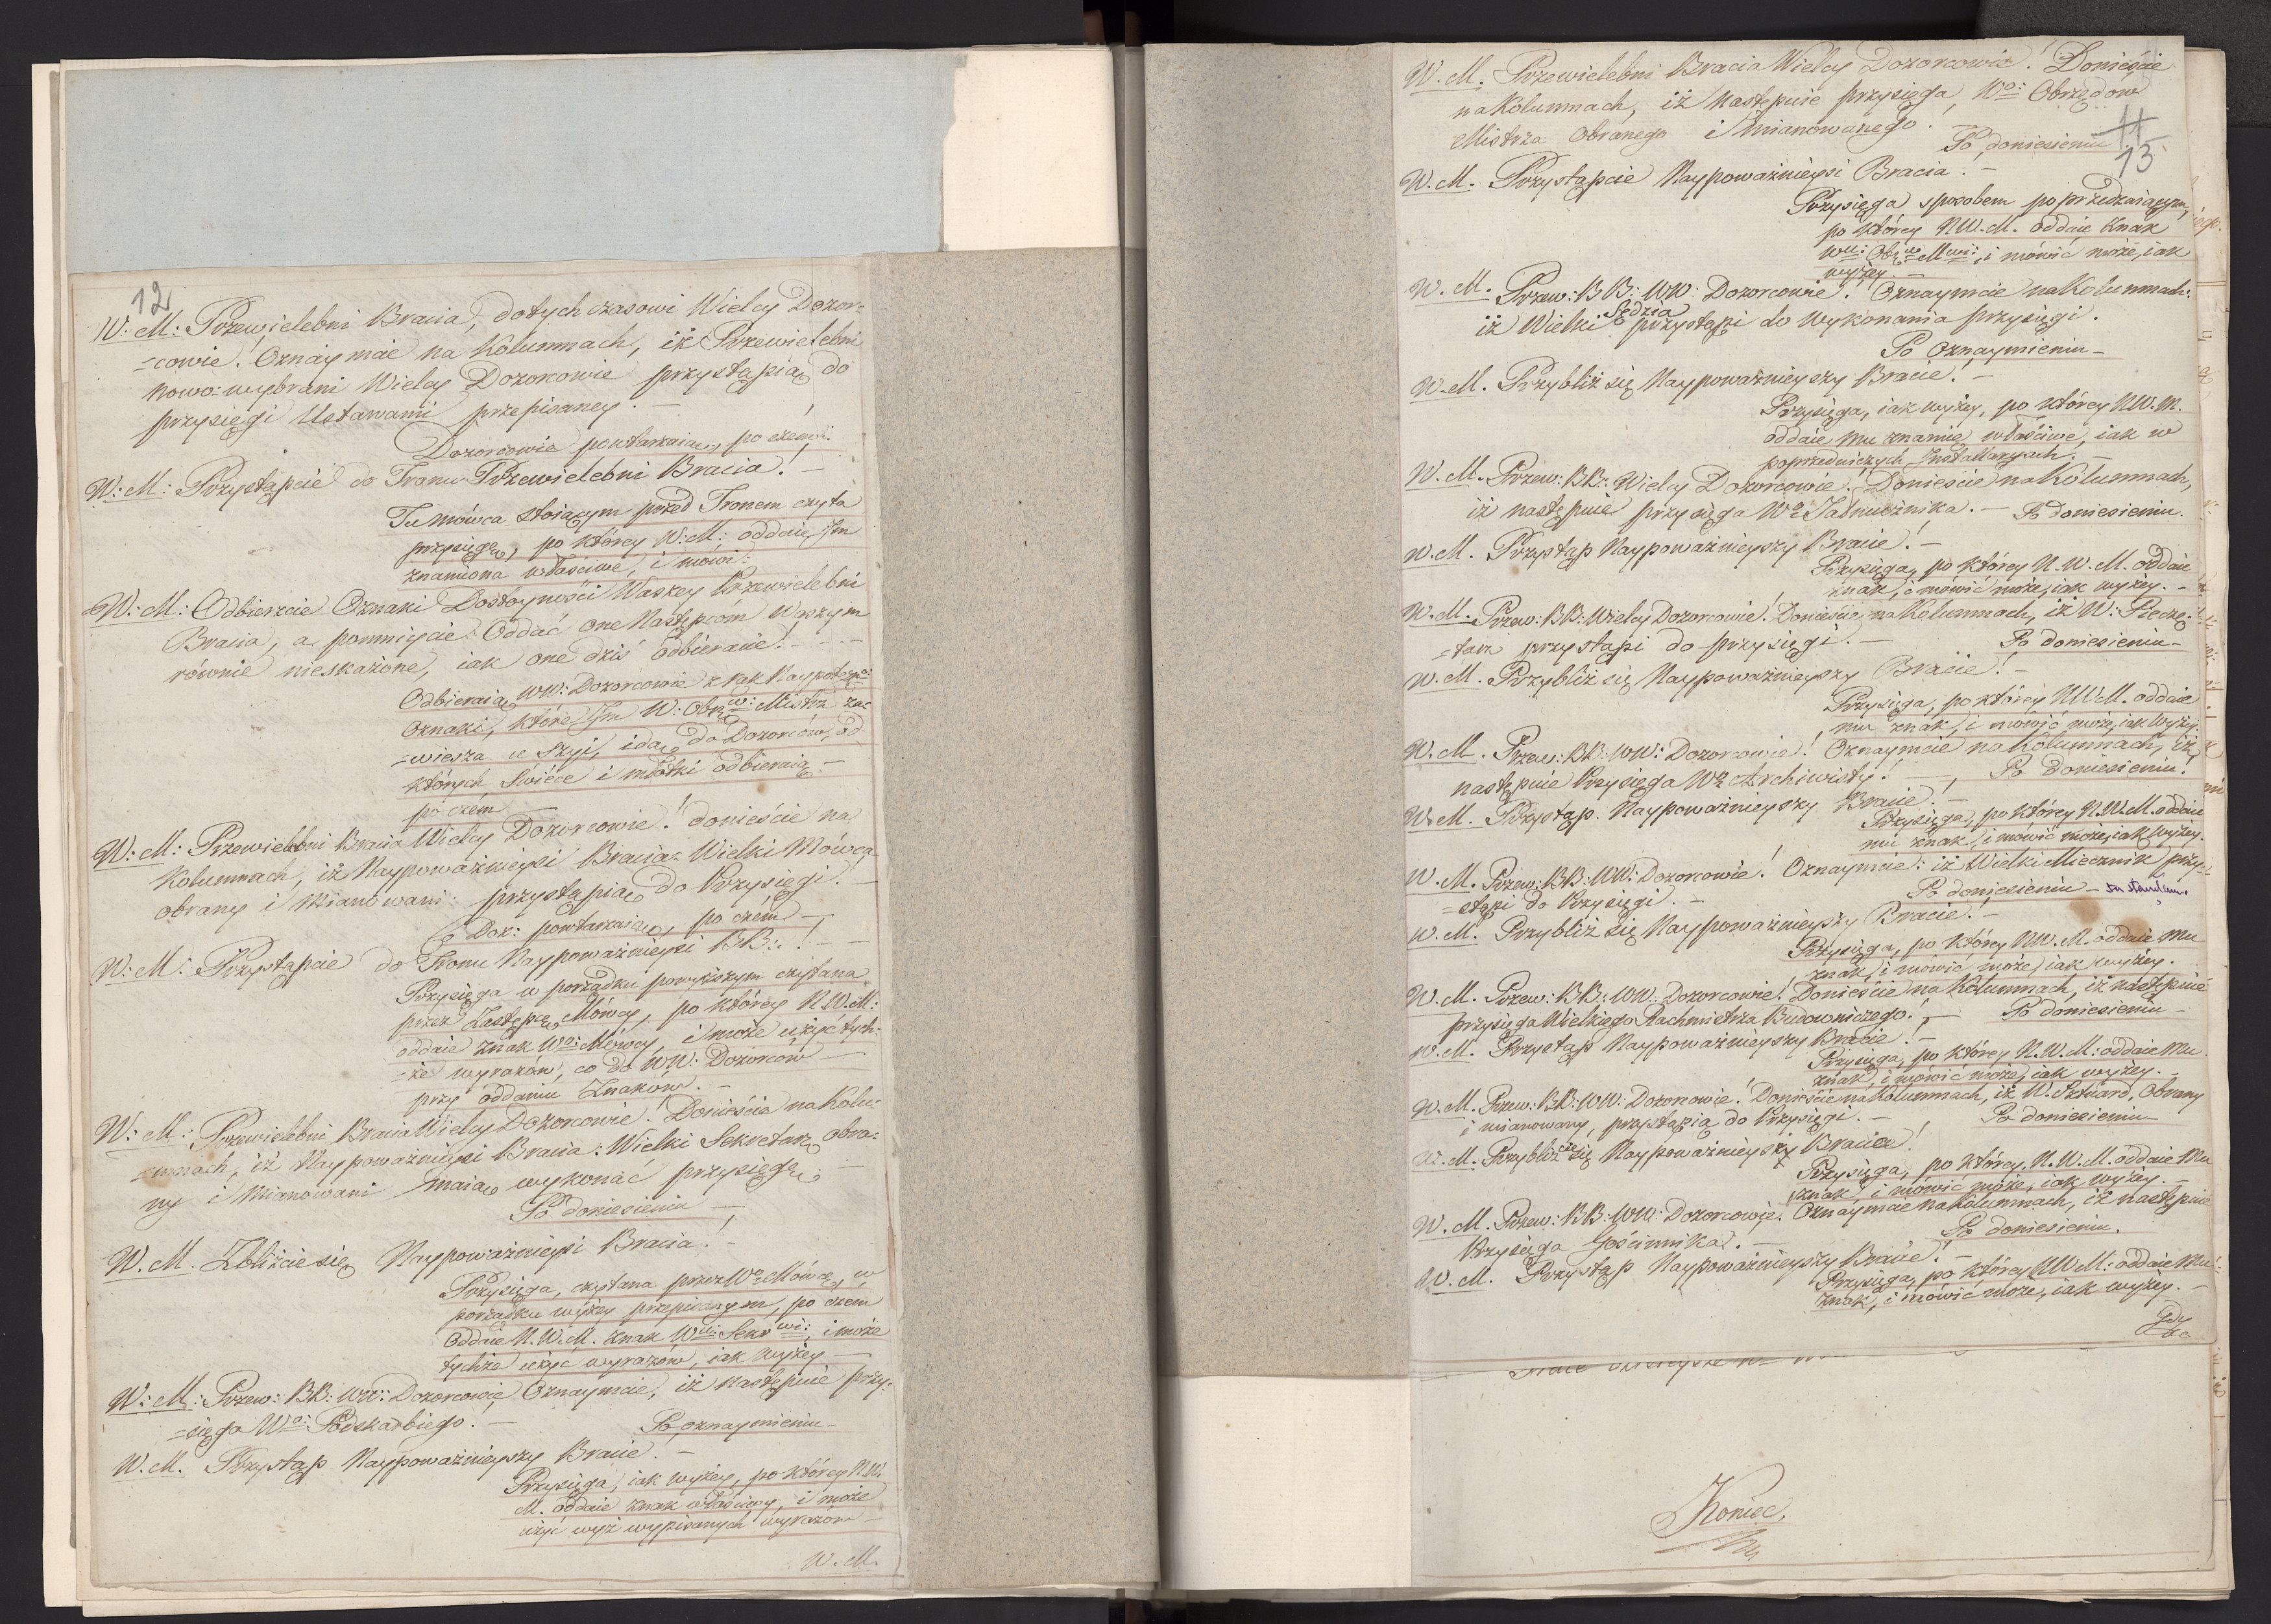 12
W: M: Przewielebni Bracia, dotychczasowi Wielcy Dozor=
=cowie! Oznaymcie na Kolumnach, iż Przewielebni
nowo-wybrani Wielcy Dozorcowie przystąpią do
przysięgi Ustawami przepisaney. —
Dozorcowie powtarzaią, po czem:
W: M: Przystąpcie do Tronu Przewielebni Bracia! —
Tu mówca stoiącym przed Tronem czyta
przysięgę, po którey W: M: oddaie Im
znamiona właściwe, i mówi:
W: M: Odbierzcie Oznaki Dostoyności Waszey Przewielebni
Bracia, a pomniycie Oddać one Następcóm Waszym
równie nieskażone, iak one dziś odbieracie! — —
Odbieraią WW: Dozorcowie z rąk
Oznaki, które Im W: Obrz: Mistrz za=
=wiesza u szyi, idą do Dozorców, od
których Świéce i młotki odbieraią —
po czém —
W: M: Przewielebni Bracia Wielcy Dozorcowie! donieście na
Kolumnach, iż Naypoważnieysi Bracia: Wielki Mówca
obrany i Mianowani: przystąpią do Przysięgi! —
Doz: powtarzaią, po czém —
W: M: Przystąpcie do Tronu Naypoważnieysi BB:! —
Przysięga w porządku powyższym czytana
przez Zastępcę Mówcy, po którey N.W.M:
oddaie znak Wo: Mówcy, i może użyć tych=
=że wyrazów, co do WW: Dozorców —
przy oddaniu Znaków. —
W: M: Przewielebni Bracia Wielcy Dozorcowie! Donieścia na Kolu=
=mnach, iż Naypoważnieysi Bracia: Wielki Sekretarz obra=
ny i Mianowani maią wykonać przysięgę. —
Po doniesieniu —
W. M. Zbliżcie się Naypoważnieysi Bracia! —
Przysięga, czytana przez Wo Mówcę, w
porządku wyżey przepisanym, po czem
Oddaie N.W.M. znak Wu: Sekrwi: i może
tychże użyć wyrazów, iak wyżey —
W: M: Przew: BB: WW: Dozorcowie, Oznaymcie, iż następuie przy=
=sięga Wo: Podskarbiego. — Po oznaymieniu —
W. M. Przystąp Naypoważnieyszy Bracie! —
Przysięga, iak wyżey, po którey N.W.
M. oddaie znak właściwy, i może
użyć wyż wypisanych wyrazów —
W. M.
W. M. Przewielebni Bracia Wielcy Dozorcowie! Donieście
na Kolumnach, iż następuie przysięga, Wo: Obrzędow
Mistrza Obranego i Mianowanego. —
Po doniesieniu
11
13
W. M. Przystąpcie Naypoważnieysi Bracia. —
Przysięga sposobem poprzedzaiącym,
po którey NW.M. oddaie znak
Wu: Obrzw Mwi: i mówić może, iak
wyżey. —
W. M. Przew: BB: WW: Dozorcowie! Oznaymcie na Kolumnach:
iż Wielki Sędzia przystąpi do wykonania przysięgi.
Po Oznaymieniu —
W. M. Przybliż się Naypoważnieyszy Bracie! —
Przysięga, iak wyżey, po którey NW.M.
oddaie mu znamię właściwe, iak w
poprzedniczych Installacyach. —
W. M. Przew: BB: Wielcy Dozorcowie! Donieście na Kolumnach,
iż następuie przysięga Wo Jałmużnika. — Po doniesieniu.
W. M. Przystąp Naypoważnieyszy Bracie! —
Przysięga, po którey N.W.M. oddaie
znak, i mówić może, iak wyżey. —
W. M. Przew: BB: Wielcy Dozorcowie! Donieście na Kolumnach, iż W: Pieczę=
=tarz przystąpi do przysięgi. — Po doniesieniu —
W. M. Przybliż się Naypoważnieyszy Bracie! —
Przysięga, po którey NW.M. oddaie
mu znak, i mówić może, iak wyżey.
W. M. Przew: BB: WW: Dozorcowie! Oznaymcie na Kolumnach, iż
następuie Przysięga Wo Archiwisty! — Po doniesieniu!
W. M. Przystąp Naypoważnieyszy Bracie! —
Przysięga, po którey N.W.M. oddaie
mu znak, i mówić może, iak wyżey.
W. M. Przew: BB: WW: Dozorcowie! Oznaymcie: iż Wielki Miecznik przy=
=stąpi do Przysięgi. — Po doniesieniu —
W. M. Przybliż się Naypoważnieyszy Bracie! —
Przysięga, po którey NW.M. oddaie mu
znak, i mówić może, iak wyżey.
W. M. Przew: BB: WW: Dozorcowie! Donieście na Kolumnach, iż następuie
przysięga Wielkiego Rachmistrza Budowniczego! — Po doniesieniu —
W. M. Przystąp Naypoważnieyszy Bracie! —
Przysięga, po którey N.W.M: oddaie mu
znak, i mówić może, iak wyżey. —
W. M. Przew: BB: WW: Dozorcowie! Donieście na Kolumnach, iż W. Sztuard, Obrany
i mianowany, przystąpią do Przysięgi. — Po doniesieniu —
W. M. Przybliżcie się Naypoważnieyszy Bracia!
Przysięga, po którey N.W.M. oddaie mu
znak, i mówić może, iak wyżey. —
W. M. Przew: BB: WW: Dozorcowie! Oznaymcie na Kolumnach, iż następuie
Przysięga Gościnnika. — Po doniesieniu.
W. M. Przystąp Naypoważnieyszy Bracie! —
Przysięga, po którey NW.M: oddaie mu
znak, i mówić może, iak wyżey. —
Gdy
Koniec.